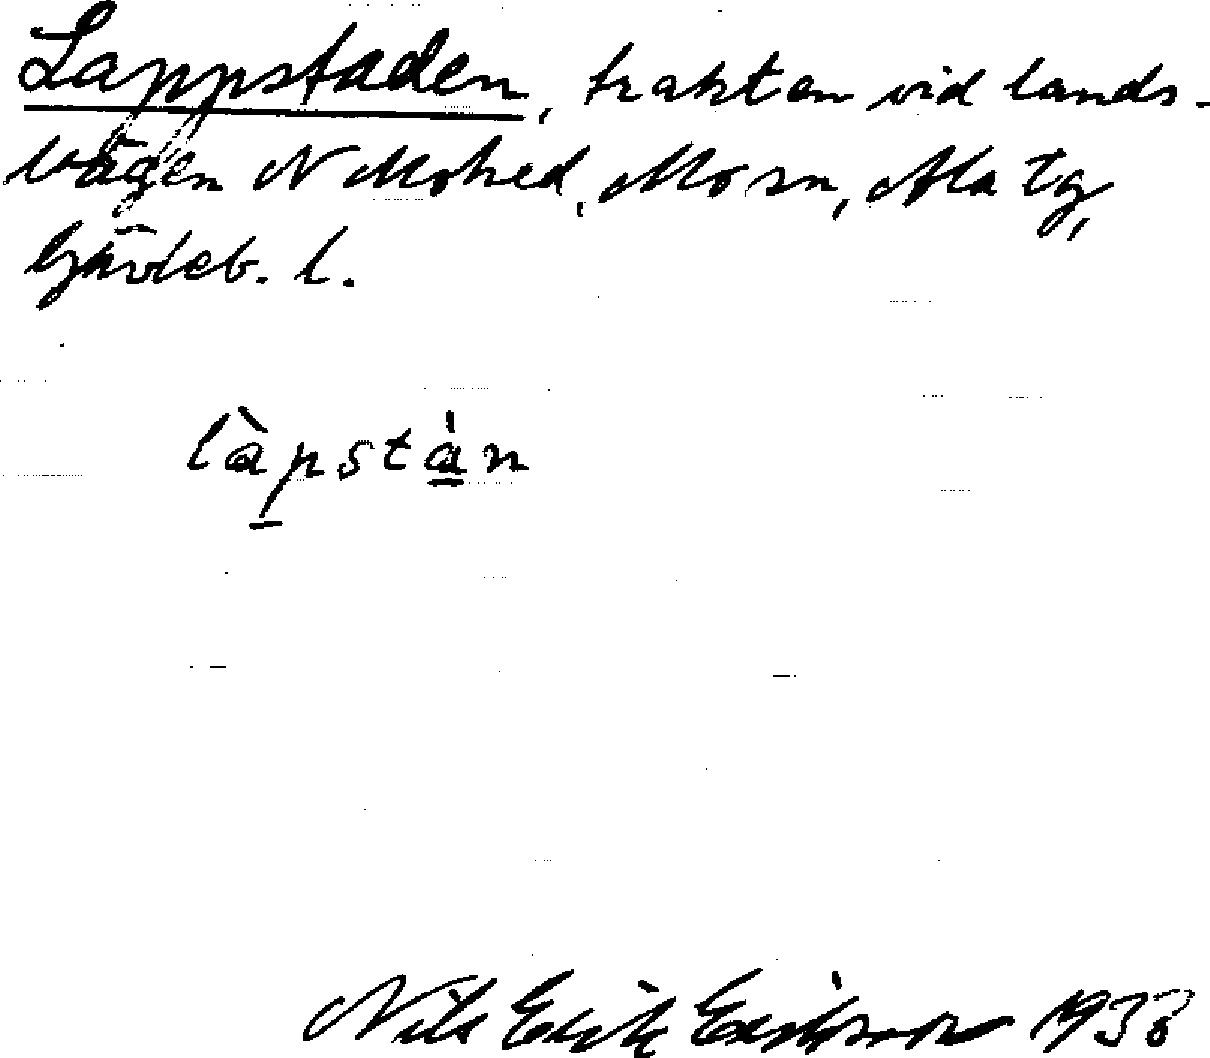 Lappstaden, trakten vid lands-
vägen N Mohed, Mo sn, Ala tg,
Gävleb. l.
làpstàn
Nils Erik Eriksson 1938